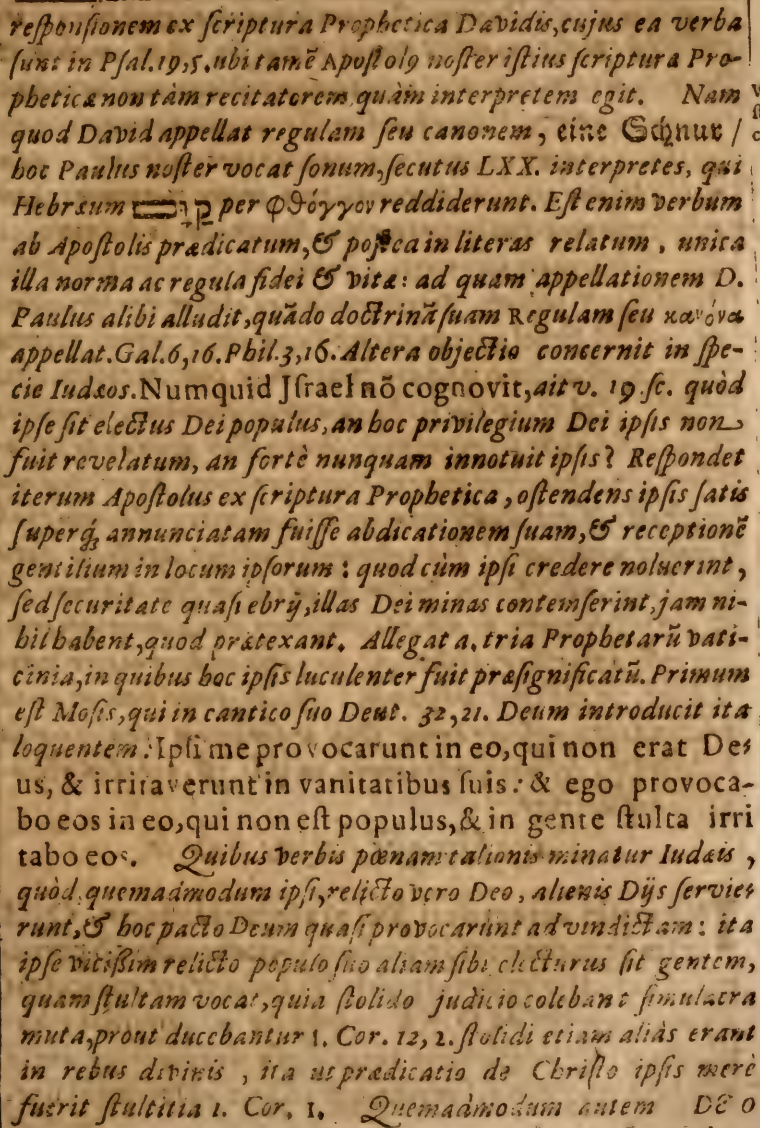 reſponſionem ex ſcriptura Prophetica Davidis, cujus ea verba
ſunt in Pſal. 19, 5. ubi tamē Apoſtolꝰ noſter iſtius ſcripturæ Pro-
pheticæ non tàm recitatorem quàm interpretem egit. Nam
quod David appellat regulam ſeu canonem, eine Schnur /
hoc Paulus noſter vocat ſonum, ſecutus LXX. interpretes, qui
Hebræum per φθόγγον reddiderunt. Eſt enim verbum
ab Apoſtolis prædicatum, & poſtea in literas relatum, unica
illa norma ac regula fidei & vitæ: ad quam appellationem D.
Paulus alibi alludit, quādo doctrinā ſuam Regulam ſeu κανόνα
appellat. Gal. 6, 16. Phil. 3, 16. Altera objectio concernit in ſpe-
cie Iudæos. Numquid Iſrael nō cognovit, ait v. 19. ſc. quòd
ipſe ſit electus Dei populus, an hoc privilegium Dei ipſis non
fuit revelatum, an fortè nunquam innotuit ipſis? Reſpondet
iterum Apoſtolus ex ſcriptura Prophetica, oſtendens ipſis ſatis
ſuperq́; annunciatam fuiſſe abdicationem ſuam, & receptionē
gentilium in locum ipſorum: quod cùm ipſi credere noluerint,
ſed ſecuritate quaſi ebrij, illas Dei minas contemſerint, jam ni-
hil habent, quod prætexant. Allegat a. tria Prophetarū vati-
cinia, in quibus hoc ipſis luculenter fuit præſignificatū. Primum
eſt Moſis, qui in cantico ſuo Deut. 32, 21. Deum introducit ita
loquentem: Ipſi me provocarunt in eo, qui non erat De-
us, & irritaverunt in vanitatibus ſuis: & ego provoca-
bo eos in eo, qui non eſt populus, & in gente ſtulta irri
tabo eos. Quibus verbis pœnam talionis minatur Iudæis,
quòd quemadmodum ipſi, relicto vero Deo, alienis Dijs ſervie-
runt, & hoc pacto Deum quaſi provocarunt ad vindictam: ita
ipſe viciſſim relicto populo ſuo aliam ſibi electurus ſit gentem,
quam ſtultam vocat, quia ſtolido judicio colebant ſimulacra
muta, prout ducebantur 1. Cor. 12, 2. ſtolidi etiam aliàs erant
in rebus divinis, ita ut prædicatio de Chriſto ipſis merè
fuerit ſtultitia 1. Cor. 1. Quemadmodum autem DEO